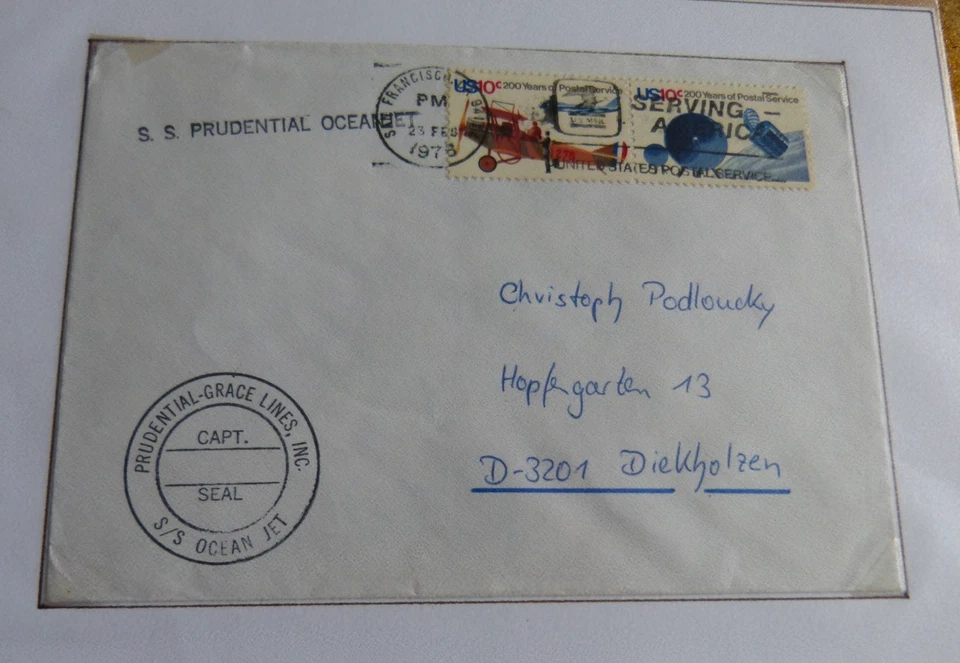 S. S. PRUDENTIAL OCEANJET
SAN FRANCISCO, CA 941
PM
23 FEB
1976
US10c 200 Years of Postal Service
US10c 200 Years of Postal Service
U.S. MAIL
SERVING
AMERICA
UNITED STATES POSTAL SERVICE
Christoph Podloucky
Hopfengarten 13
D-3201 Diekholzen
PRUDENTIAL-GRACE LINES, INC.
CAPT.
SEAL
S/S OCEAN JET